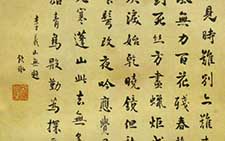 見時難別亦難
風無力百花殘春
對死絲方盡蠟炬
淚始乾曉鏡但
改夜吟應覺
寒蓬山此去無
青鳥殷勤為探
李義山無題